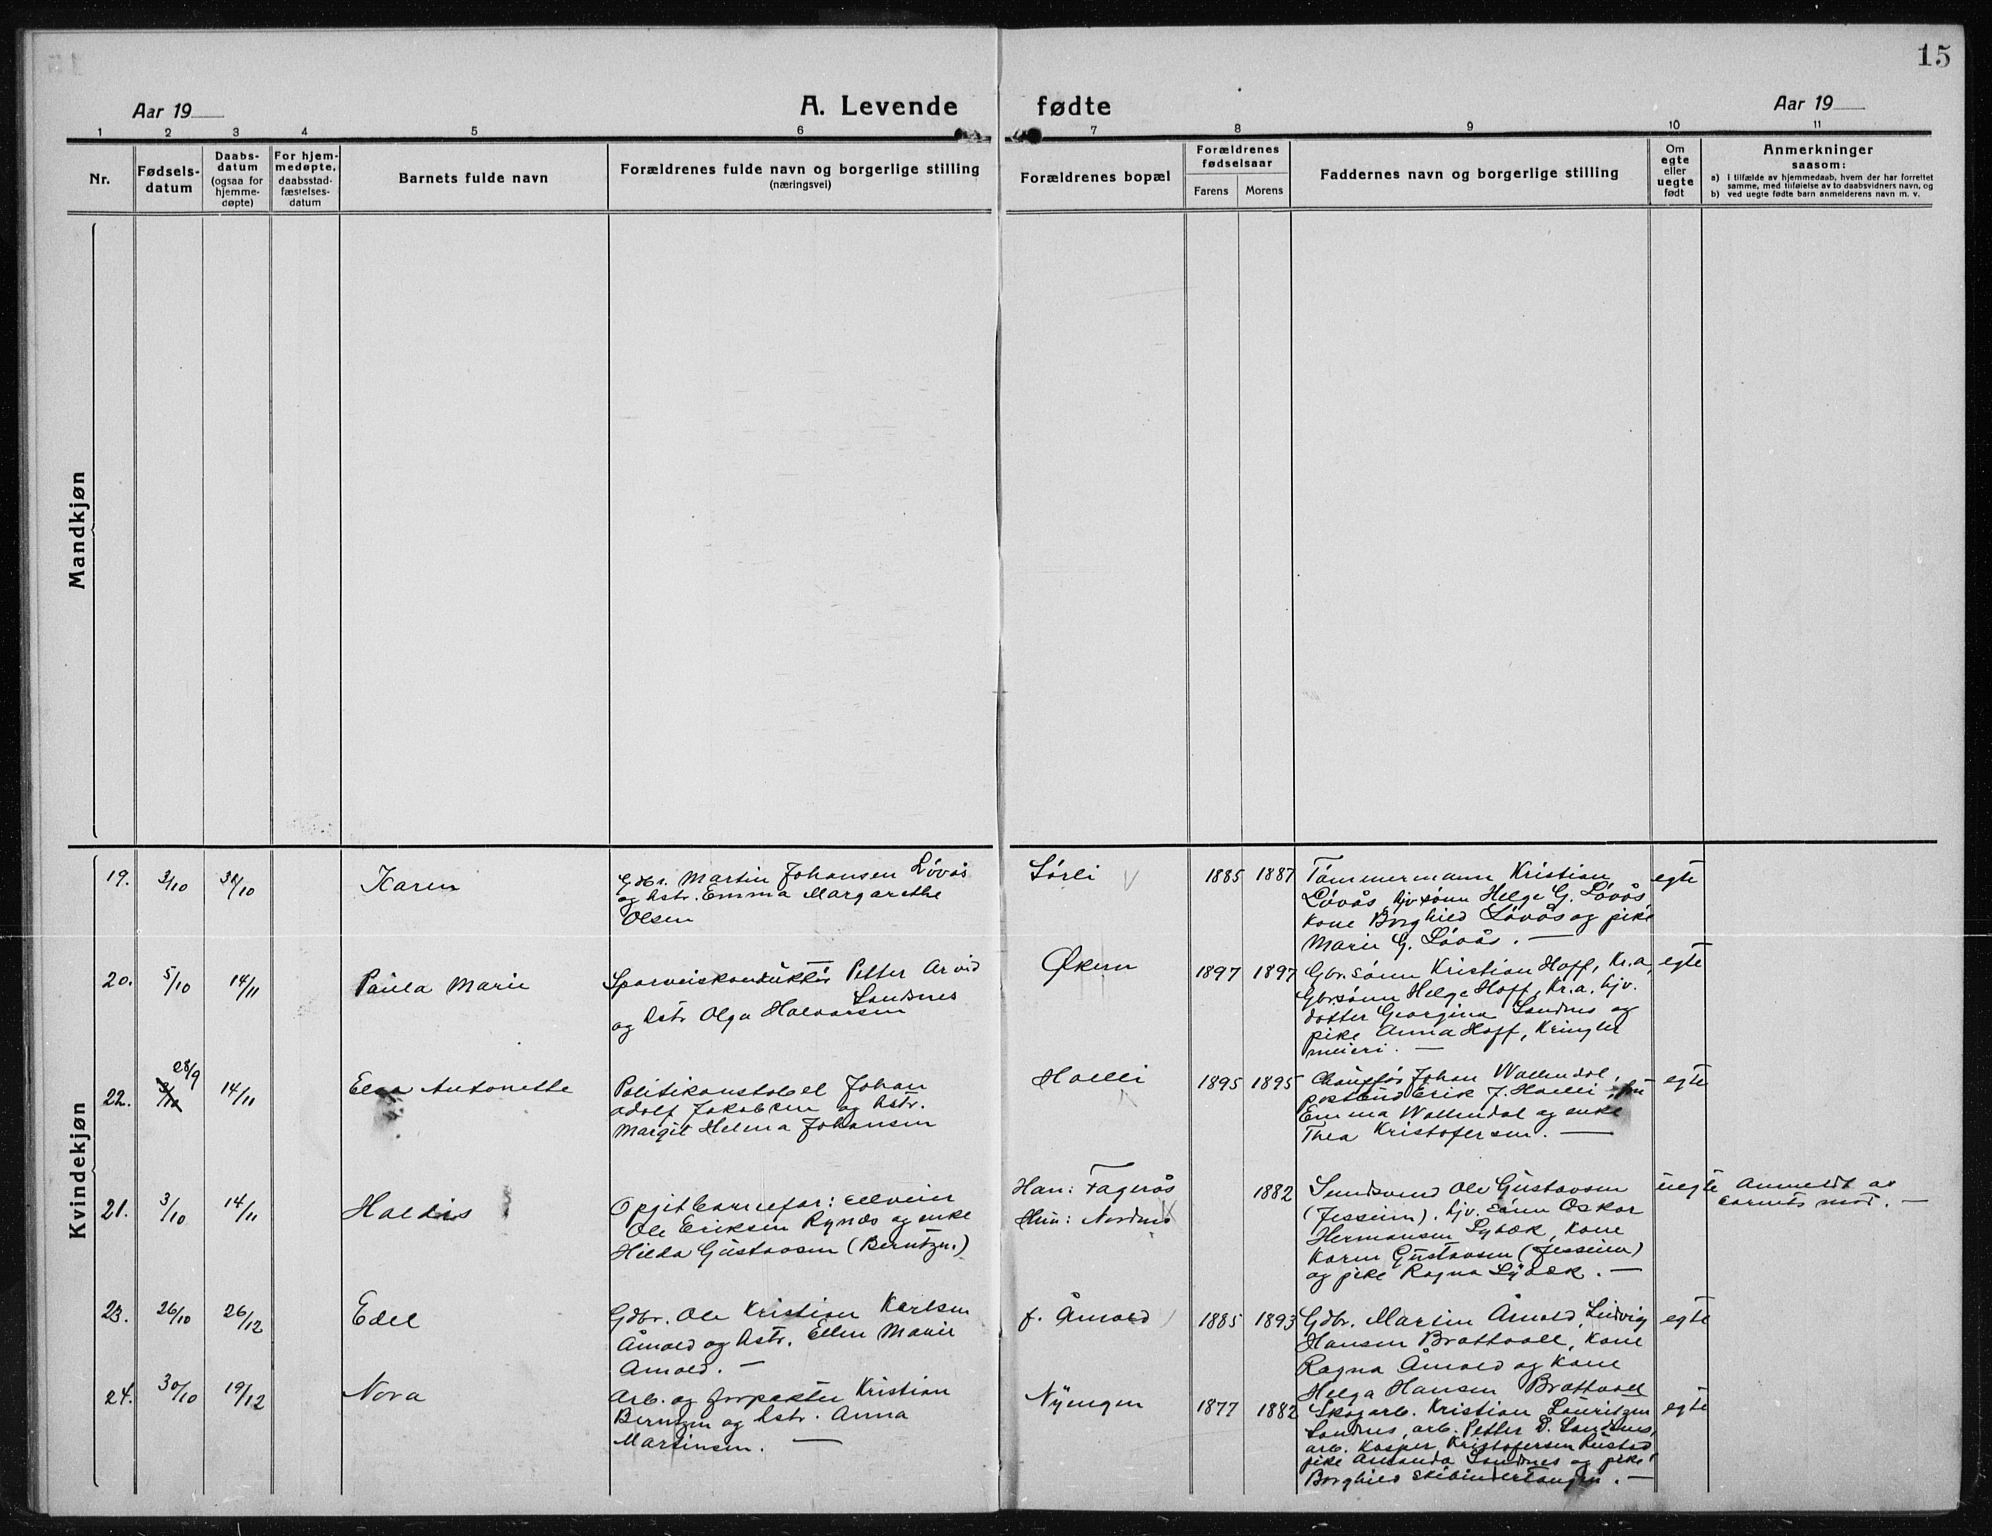 15
Aar 19
A. Levende fødte
Aar 19
1 2 3 4 5 6 7 8 9 10 11
Nr.
Fødsels-
datum
Daabs-
datum
(ogsaa for
hjemme-
døpte)
For hjem-
medøpte,
daabsstad-
fæstelses-
datum
Barnets fulde navn
Forældrenes fulde navn og borgerlige stilling
(næringsvei)
Forældrenes bopæl
Forældrenes
fødselsaar
Farens Morens
Faddernes navn og borgerlige stilling
Om
egte
eller
uegte
født
Anmerkninger
saasom:
a) I tilfælde av hjemmedaab, hvem der har forrettet
samme, med tilføielse av to daabsvidners navn, og
b) ved uegte fødte barn anmelderens navn m. v.
Mandkjøn
Kvindekjøn
19. 3/10 31/10 Karen
Gdbr. Martin Johansen Løvås
og hstr. Emma Margarethe
Olsen
Sørli
1885 1887
Tømmermann Kristian
Løvås, hjv. sønn Helge G. Løvås,
kone Borghild Løvås og pike
Marie G. Løvås. —
egte
20. 5/10 14/11 Paula Marie
Sporveiskonduktør Petter Arvid
Sandsnes
og hstr Olga Halvorsen
Økern
1897 1897
Gbr.sønn Kristian Hoff, Kr.a,
Gbrsønn Helge Hoff, Kr.a. hjv.
datter Georgina Sandnes og
pike Anna Hoff, Kringler
meieri. —
egte
22. 28/9 14/11 Elsa Antonette
Politikonstabel Johan
Adolf Jakobsen og hstr.
Margit Helena Johansen
Holli
1895 1895
Chauffør Johan Wallendal,
postbud Erik J. Holli, fru
Emma Wallendal og enke
Thea Kristofersen. —
egte
21. 3/10 14/11 Haldis
Opgit barnefar: elveeier
Ole Eriksen Rynæs og enke
Hilda Gustavsen (Berntzn.)
Han: Fagerås
Hun: Nordnes
1882
Svendsvend Ole Gustavsen
(Jesseim), hjv. sønn Oskar
Hermansen Lybæk, kone
Karen Gustavsen (Jesseim)
og pike Ragna Lybæk. —
uegte
Anmeldt av
barnets mor. —
23. 26/10 26/12 Edel
Gdbr. Ole Kristian Karlsen
Årnold og hstr. Ellen Marie
Arnold. —
f. Årnold
1885 1893
Gdbr. Martin Årnold, Ludvig
Hansen Brattvoll, kone
Ragna Årnold og kone
Helga Hansen Brattvoll
egte
24. 30/10 19/12 Nora
Arb. og forpakter Kristian
Berntzen og hstr. Anna
Martinsen. —
Nyengen
1877 1882
Skogarb. Kristian Lauritzen
Sandnes, arb. Petter D. Sandsnes,
arb. Kasper Kristofersen Rustad
pike Amanda Sandnes og pike
Borghild Skibindertangen. —
egte